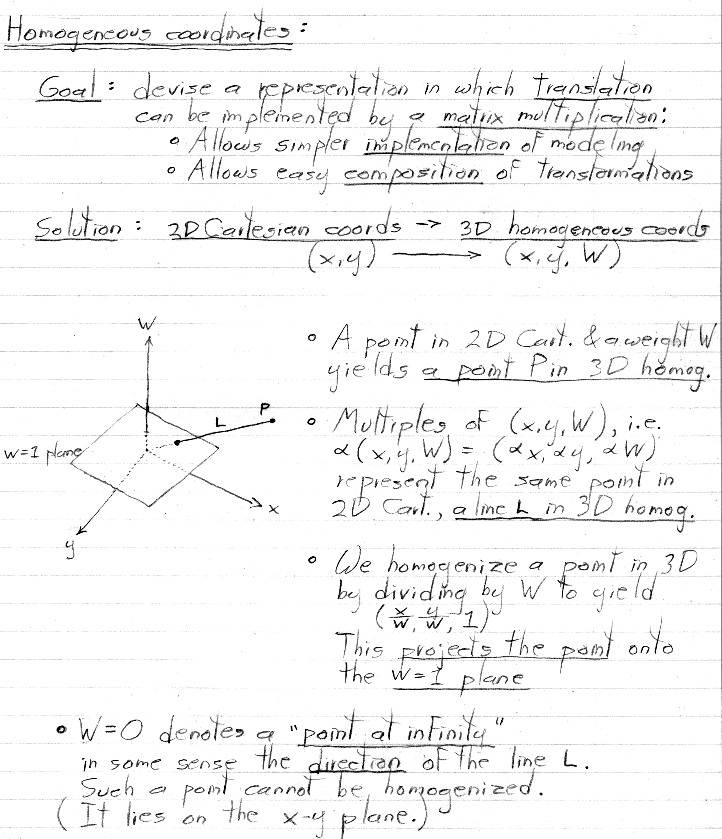 Homogeneous coordinates:
Goal: devise a representation in which translation
can be implemented by a matrix multiplication:
∘ Allows simpler implementation of modeling
∘ Allows easy composition of transformations
Solution: 2D Cartesian coords → 3D homogeneous coords
(x,y) → (x,y,W)
W
L
P
W=1 plane
x
y
∘ A point in 2D Cart. & a weight W
yields a point P in 3D homog.
∘ Multiples of (x,y,W), i.e.
α(x,y,W) = (αx, αy, αW)
represent the same point in
2D Cart., a line L in 3D homog.
∘ We homogenize a point in 3D
by dividing by W to yield
(x/W, y/W, 1)
This projects the point onto
the W=1 plane
∘ W=0 denotes a "point at infinity"
in some sense the direction of the line L.
Such a point cannot be homogenized.
(It lies on the x-y plane.)